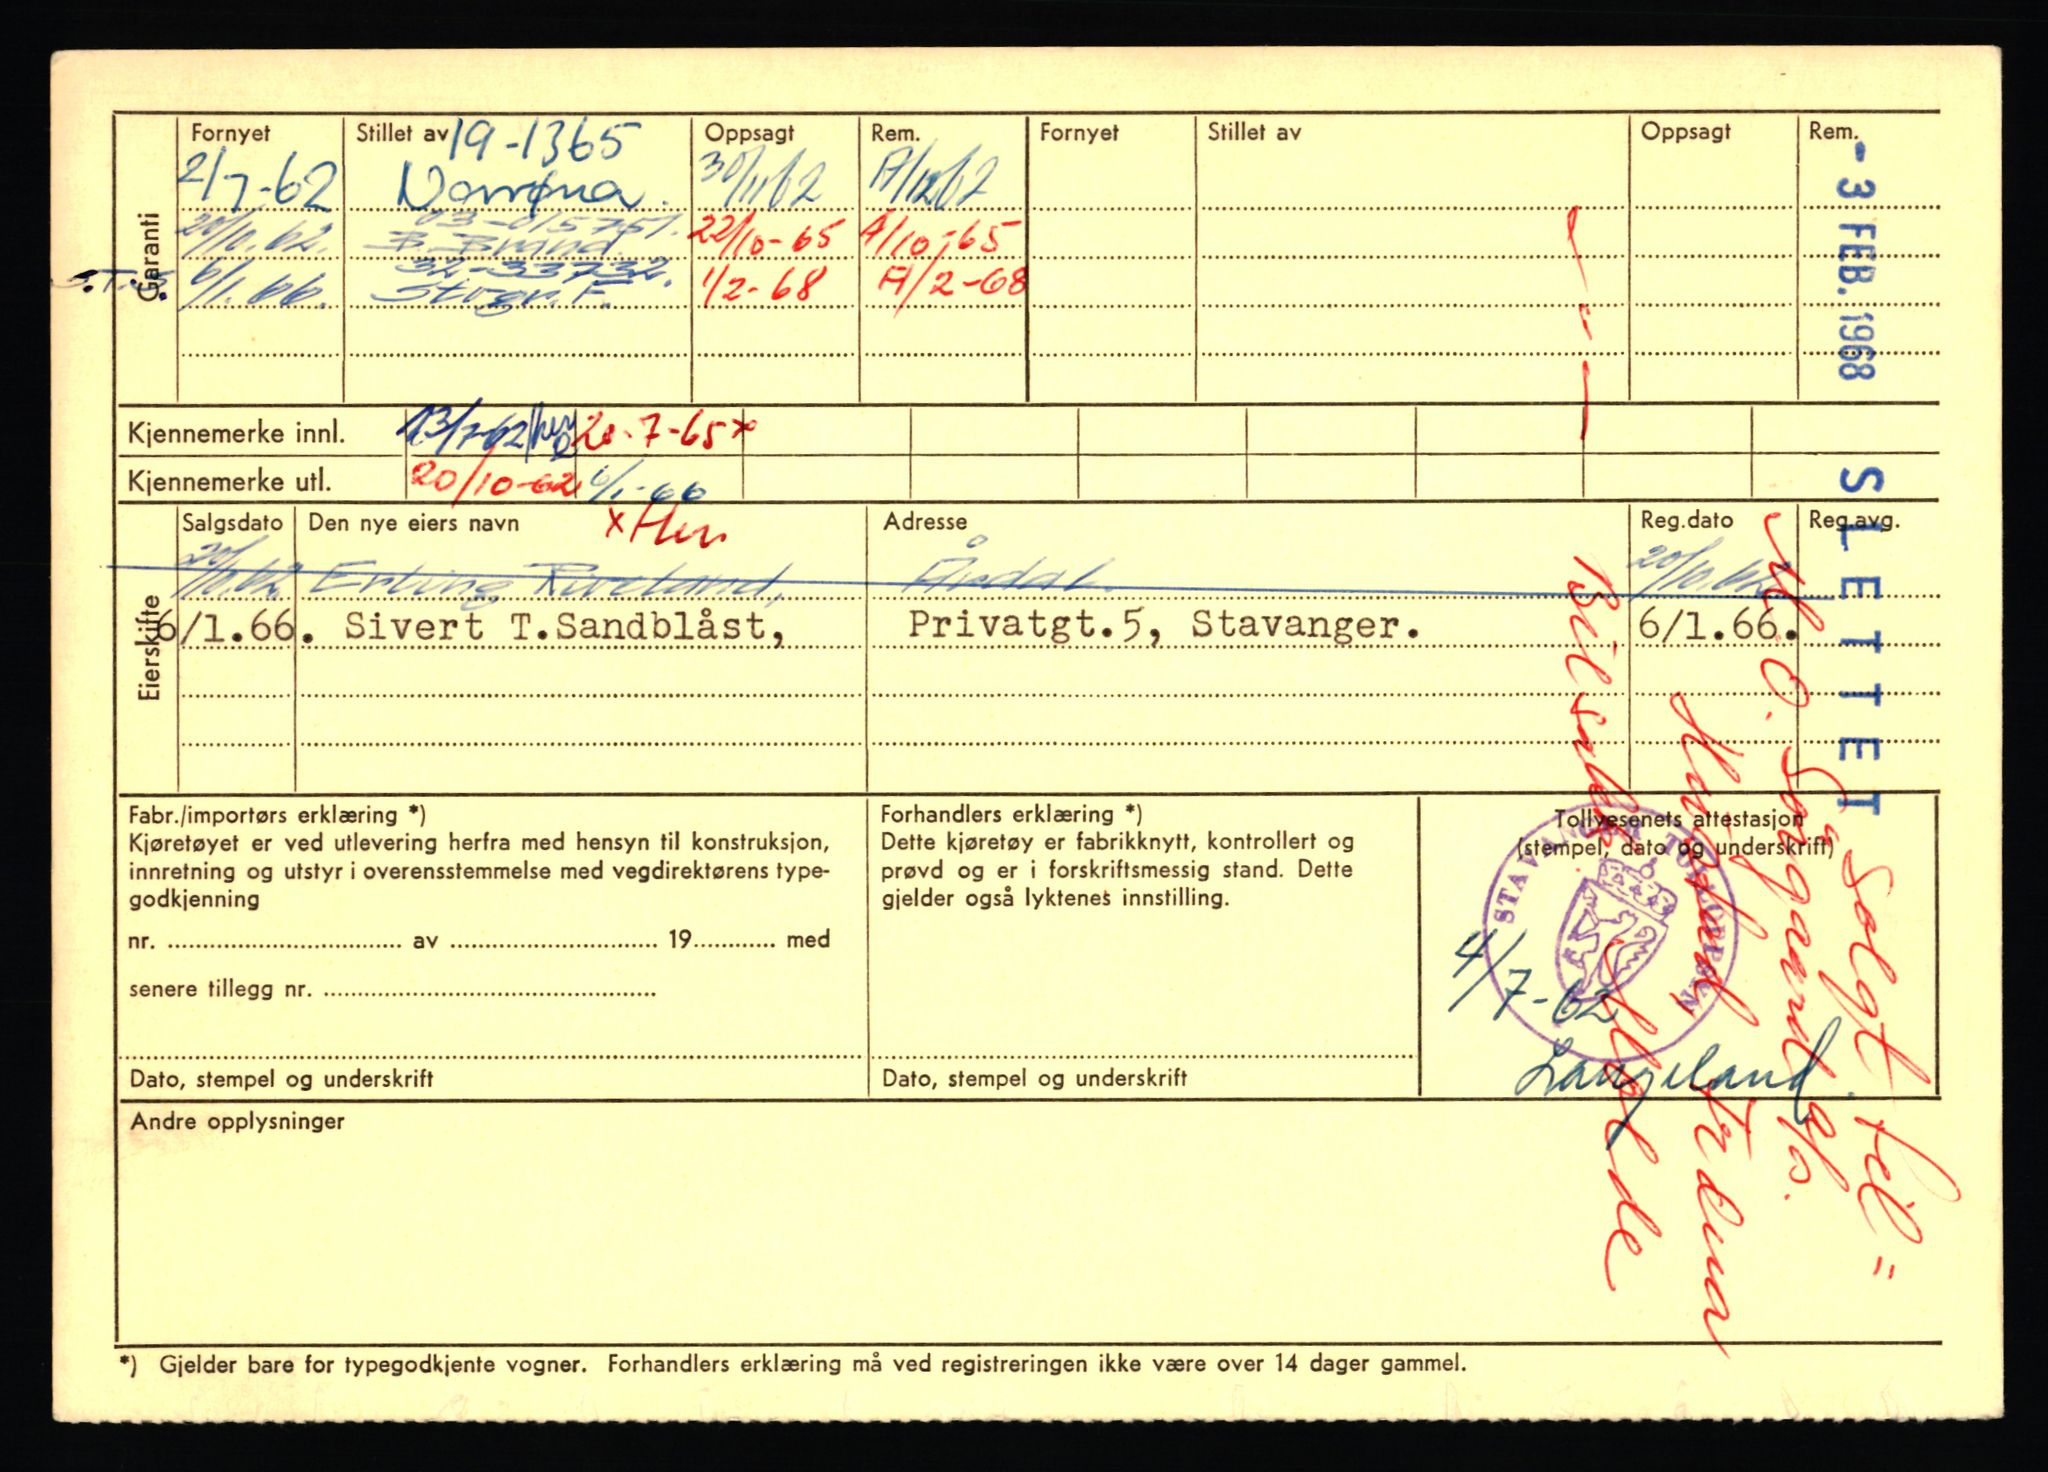 Fornyet Stillet av 19-1365 Oppsagt Rem. Fornyet Stillet av Oppsagt Rem.
2/7-62 Norrøna. 30/11 62 A/12 62
Garanti
20/10.62. 03-015757. B. Brand. 22/10-65 A/10-65
6/1.66. 32-33732. Storebr. F. 1/2-68 A/2-68
- 3 FEB. 1968
Kjennemerke innl. 13/7-62 20-7-65 x
Kjennemerke utl. 20/10-62 6/1-66
SLETTET
Eierskifte
Salgsdato Den nye eiers navn x Hen Adresse Reg.dato Reg.avg.
20/10.62. Erling Riveland, Årdal. 20/10.62
6/1.66. Sivert T.Sandblåst, Privatgt.5, Stavanger. 6/1.66.
Fabr./importørs erklæring *)
Kjøretøyet er ved utlevering herfra med hensyn til konstruksjon,
innretning og utstyr i overensstemmelse med vegdirektørens type-
godkjenning
nr. ........ av ........ 19........ med
senere tillegg nr. ........
Dato, stempel og underskrift
Forhandlers erklæring *)
Dette kjøretøy er fabrikknytt, kontrollert og
prøvd og er i forskriftsmessig stand. Dette
gjelder også lyktenes innstilling.
Dato, stempel og underskrift
Tollvesenets attestasjon
(stempel, dato og underskrift)
STAVANGER TOLLOPPSYN
4/7-62
Langeland
" Solgt til "
O. Sørgaard a/s.
Bilsalg
Andre opplysninger
*) Gjelder bare for typegodkjente vogner. Forhandlers erklæring må ved registreringen ikke være over 14 dager gammel.